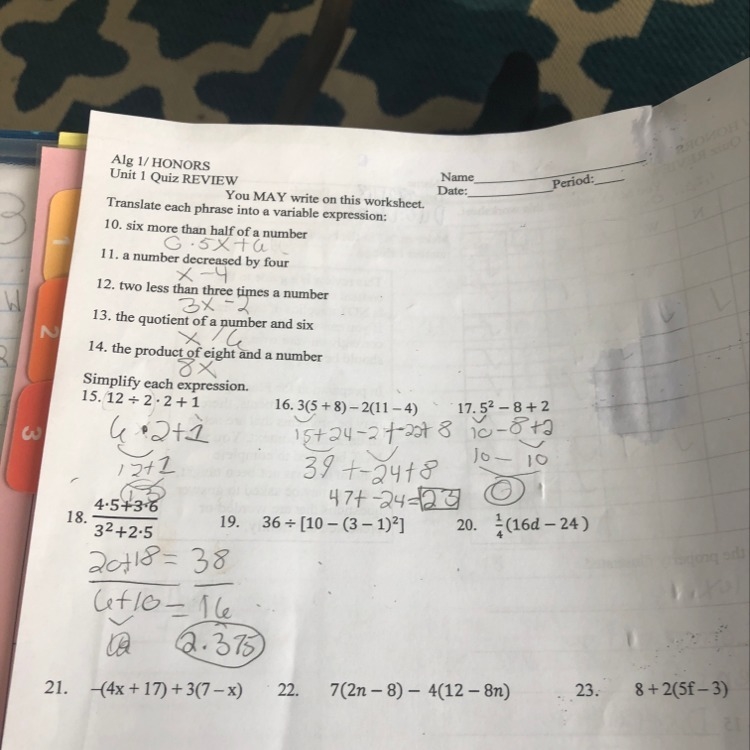 Alg 1/ HONORS
Unit 1 Quiz REVIEW
Name
Date: Period:
You MAY write on this worksheet.
Translate each phrase into a variable expression:
10. six more than half of a number
0.5x+6
11. a number decreased by four
x-4
12. two less than three times a number
3x-2
13. the quotient of a number and six
x/6
14. the product of eight and a number
8x
Simplify each expression.
15. 12 ÷ 2 · 2 + 1 16. 3(5 + 8) – 2(11 – 4) 17. 5² – 8 + 2
6·2+1 15+24-2+-22+8 10-8+2
12+1 39+-24+8 10-10
13 47+-24=23 0
18. 4·5+3·6 / 3²+2·5 19. 36 ÷ [10 – (3 – 1)²] 20. ¼(16d – 24)
20+18 = 38
6+10 = 16
2.375
21. –(4x + 17) + 3(7 – x) 22. 7(2n – 8) – 4(12 – 8n) 23. 8 + 2(5f – 3)
1
2
3